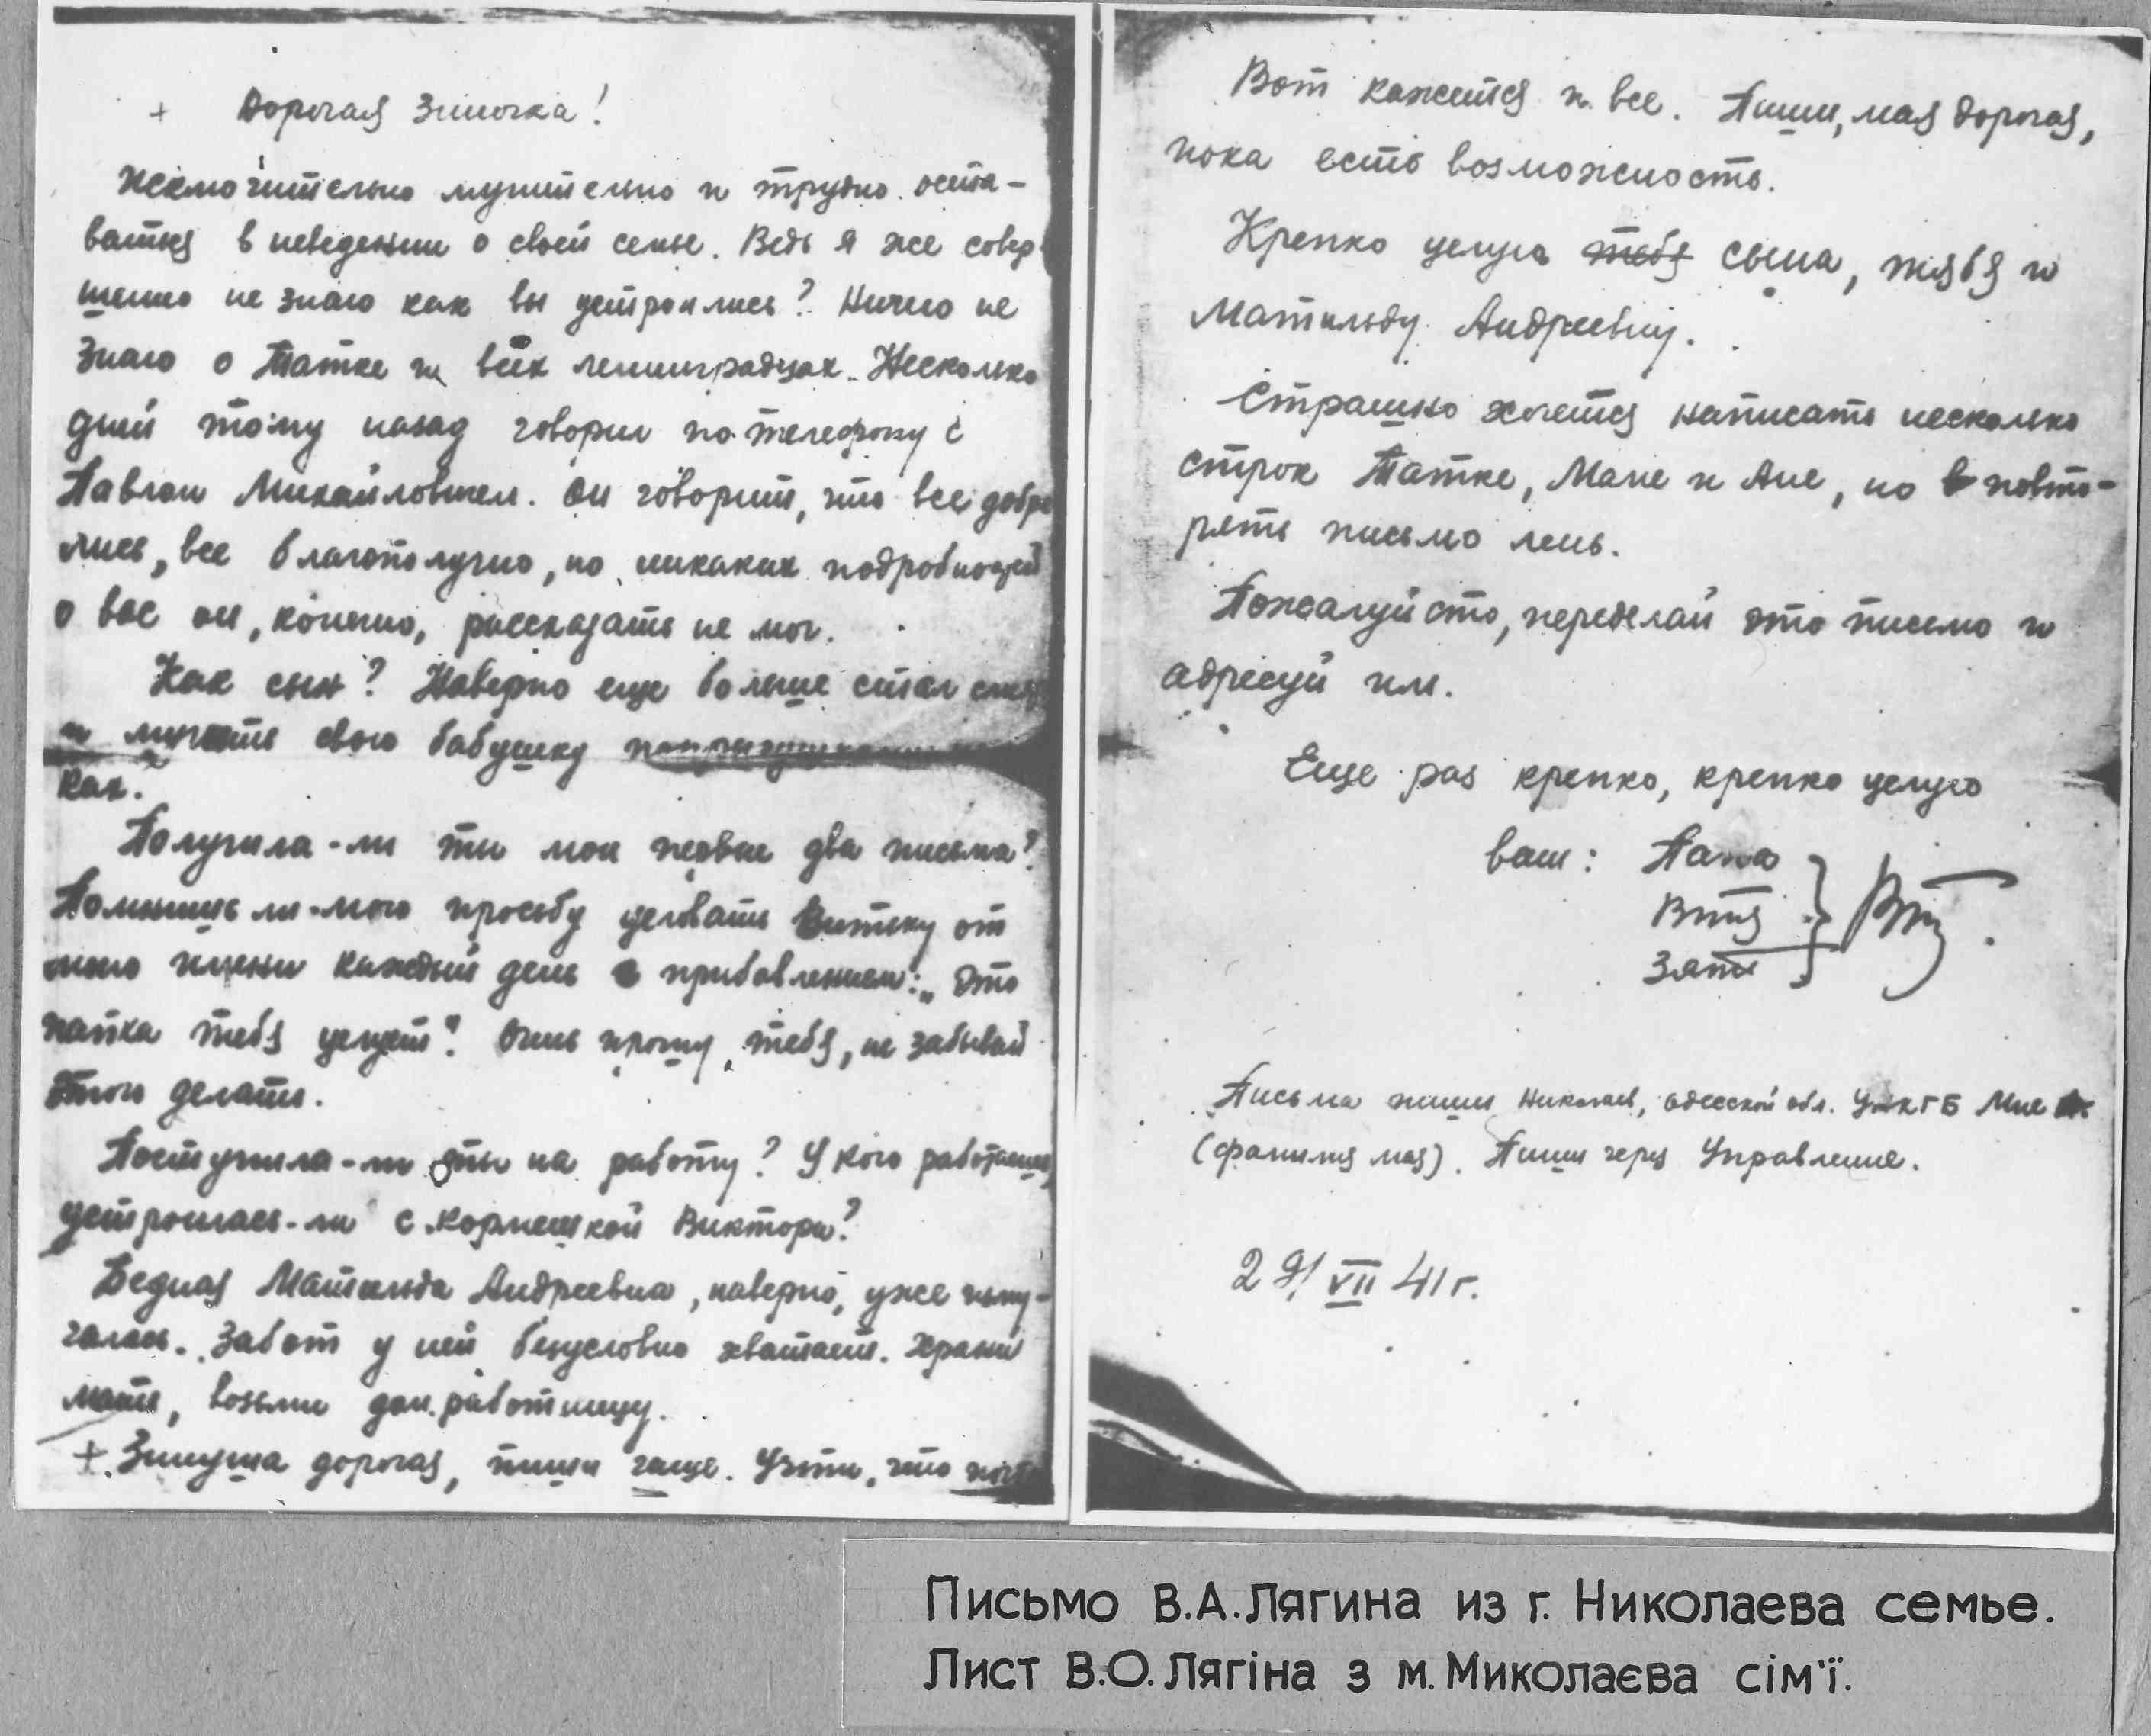 + Дорогая Зиночка!
Исключительно мучительно и трудно оста-
ваться в неведении о своей семье. Ведь я же совер
шенно не знаю как вы устроились? Ничего не
знаю о Татке и всех ленинградцах. Несколько
дней тому назад говорил по телефону с
Павлом Михайловичем. Он говорит, что все добра
лись, все благополучно, но никаких подробностей
о вас он, конечно, рассказать не мог.
Как сын? Наверно еще больше стал
и мучить свою бабушку
как.
Получила-ли ты мои первые два письма?
Помнишь ли мою просьбу целовать Витьку от
моего имени каждый день с прибавлением: „Это
папка тебя целует"? Очень прошу тебя, не забывай
этого делать.
Поступила-ли ты на работу? У кого работаешь,
устроилась-ли с кормежкой Виктора?
Бедная Матильда Андреевна, наверно, уже изму-
чалась. Забот у ней безусловно хватает. Храни
мать, возьми дом. работницу.
+ Зинуша дорогая, пиши чаще. Учти, что
Вот кажется и все. Пиши, моя дорогая,
пока есть возможность.
Крепко целую тебя сына, тебя и
Матильду Андреевну.
Страшно хочется написать несколько
строк Татке, Мане и Ане, но повто-
рять письмо лень.
Пожалуйсто, переделай это письмо и
адресуй им.
Еще раз крепко, крепко целую
ваш: Папа
Витя
Зять
Письма пиши Николаев, Одесской обл. УНКГБ Мне
(фамилия моя). Пиши через Управление.
29/VII 41 г.
Письмо В.А.Лягина из г. Николаева семье.
Лист В.О.Лягіна з м. Миколаєва сім'ї.